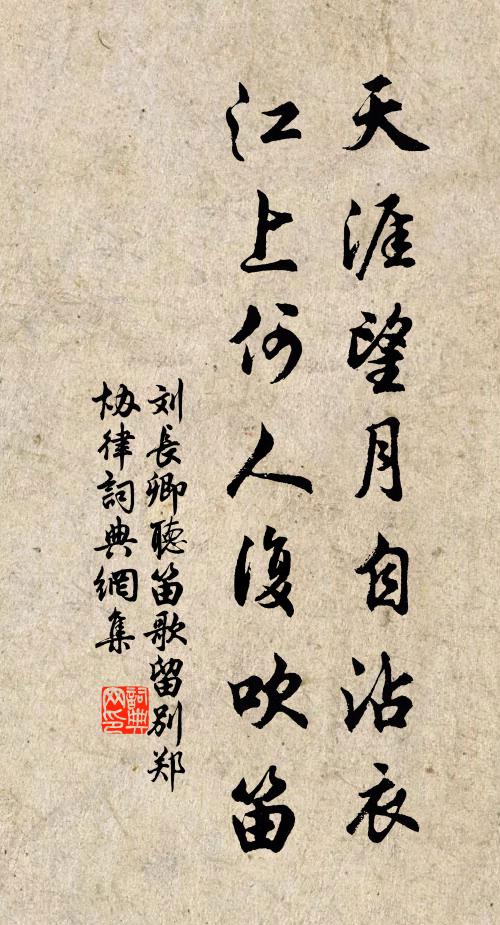 天涯望月自沾衣
江上何人復吹笛
刘長卿聽笛歌留别郑
协律詞典網集
詞典网印